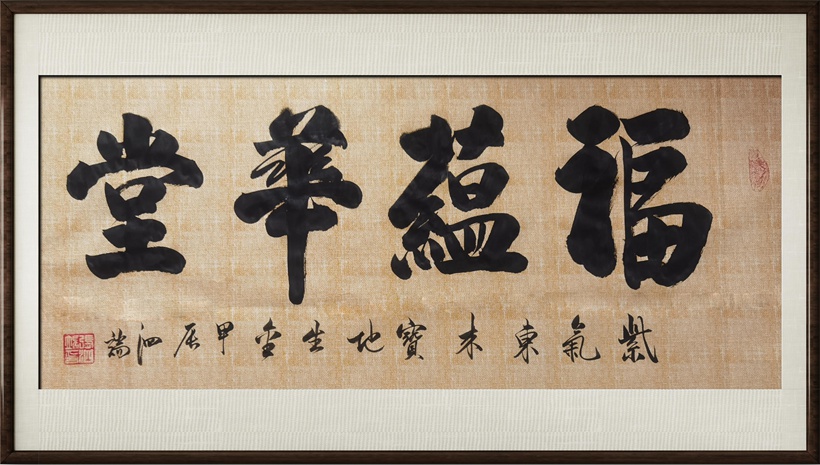 福蘊華堂
紫氣東来寶地生金甲辰泗端